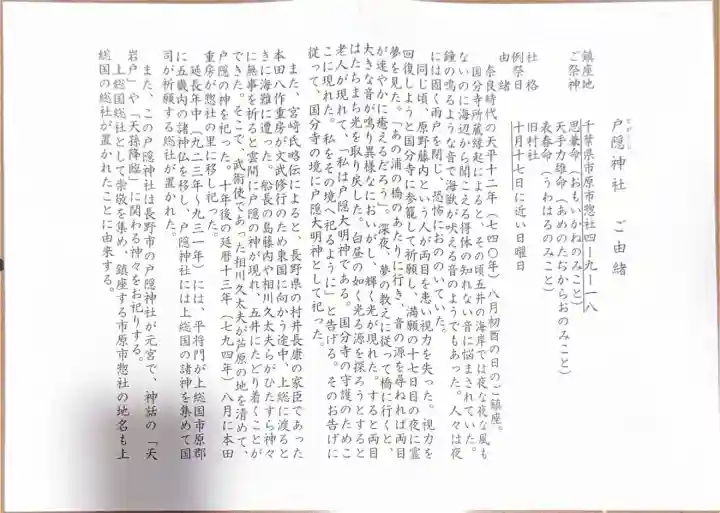 戸隠神社　ご由緒
鎮座地　千葉県市原市惣社四―九―一八
ご祭神　思兼命（おもいかねのみこと）
天手力雄命（あめのたぢからおのみこと）
表春命（うわはるのみこと）
社格　旧村社
例祭日　十月十七日に近い日曜日
由緒
奈良時代の天平十二年（七四〇年）八月初酉の日のご鎮座。
国分寺所蔵縁起によると、その頃五井の海岸では夜な夜な風も
ないのに海辺から聞こえる得体の知れない音に悩まされていた。
鐘の鳴るような音で海獣が吠える音のようでもあった。人々は夜
には固く雨戸を閉じ、恐怖におののいていた。
同じ頃、原野藤内という人が両目を患い視力を失った。視力を
回復しようと国分寺に参籠して祈願し、満願の十七日目の夜に霊
夢を見た。「あの浦の橋のあたりに行き、音の源を尋ねれば両目
が速やかに癒えるだろう」。深夜、夢の教えに従って橋に行くと、
大きな音が鳴り異様なにおいがし、輝く光が現れた。すると両目
はたちまち光を取り戻した。白昼の如く光る源を探ろうとすると
老人が現れて、「私は戸隠大明神である。国分寺の守護のためこ
こに現れた。私をその境へ祀るように」と告げる。そのお告げに
従って、国分寺の境に戸隠大明神として祀った。
また、宮﨑氏略伝によると、長野県の村井長康の家臣であった
本田八作重房が文武修行のため東国に向かう途中、上総に渡ると
きに海難に遭った。船長の島藤内や相川久太夫らがひたすら神々
に無事を祈ると雲間に戸隠の神が現れ、五井にたどり着くことが
できた。そこで、武術使であった相川久太夫が芦原の地を清めて、
戸隠の神を祀った。十年後の延暦十三年（七九四年）八月に本田
重房が惣社の里に移し祀った。
延長年中（九二三年～九三一年）には、平将門が上総国市原郡
に五畿内の諸神仏を移し、戸隠神社には上総国の諸神を集めて国
司が祈願する総社が置かれた。
また、この戸隠神社は長野市の戸隠神社が元宮で、神話の「天
岩戸」や「天孫降臨」に関わる神々をお祀りする。
上総国総社として崇敬を集め、鎮座する市原市惣社の地名も上
総国の総社が置かれたことに由来する。